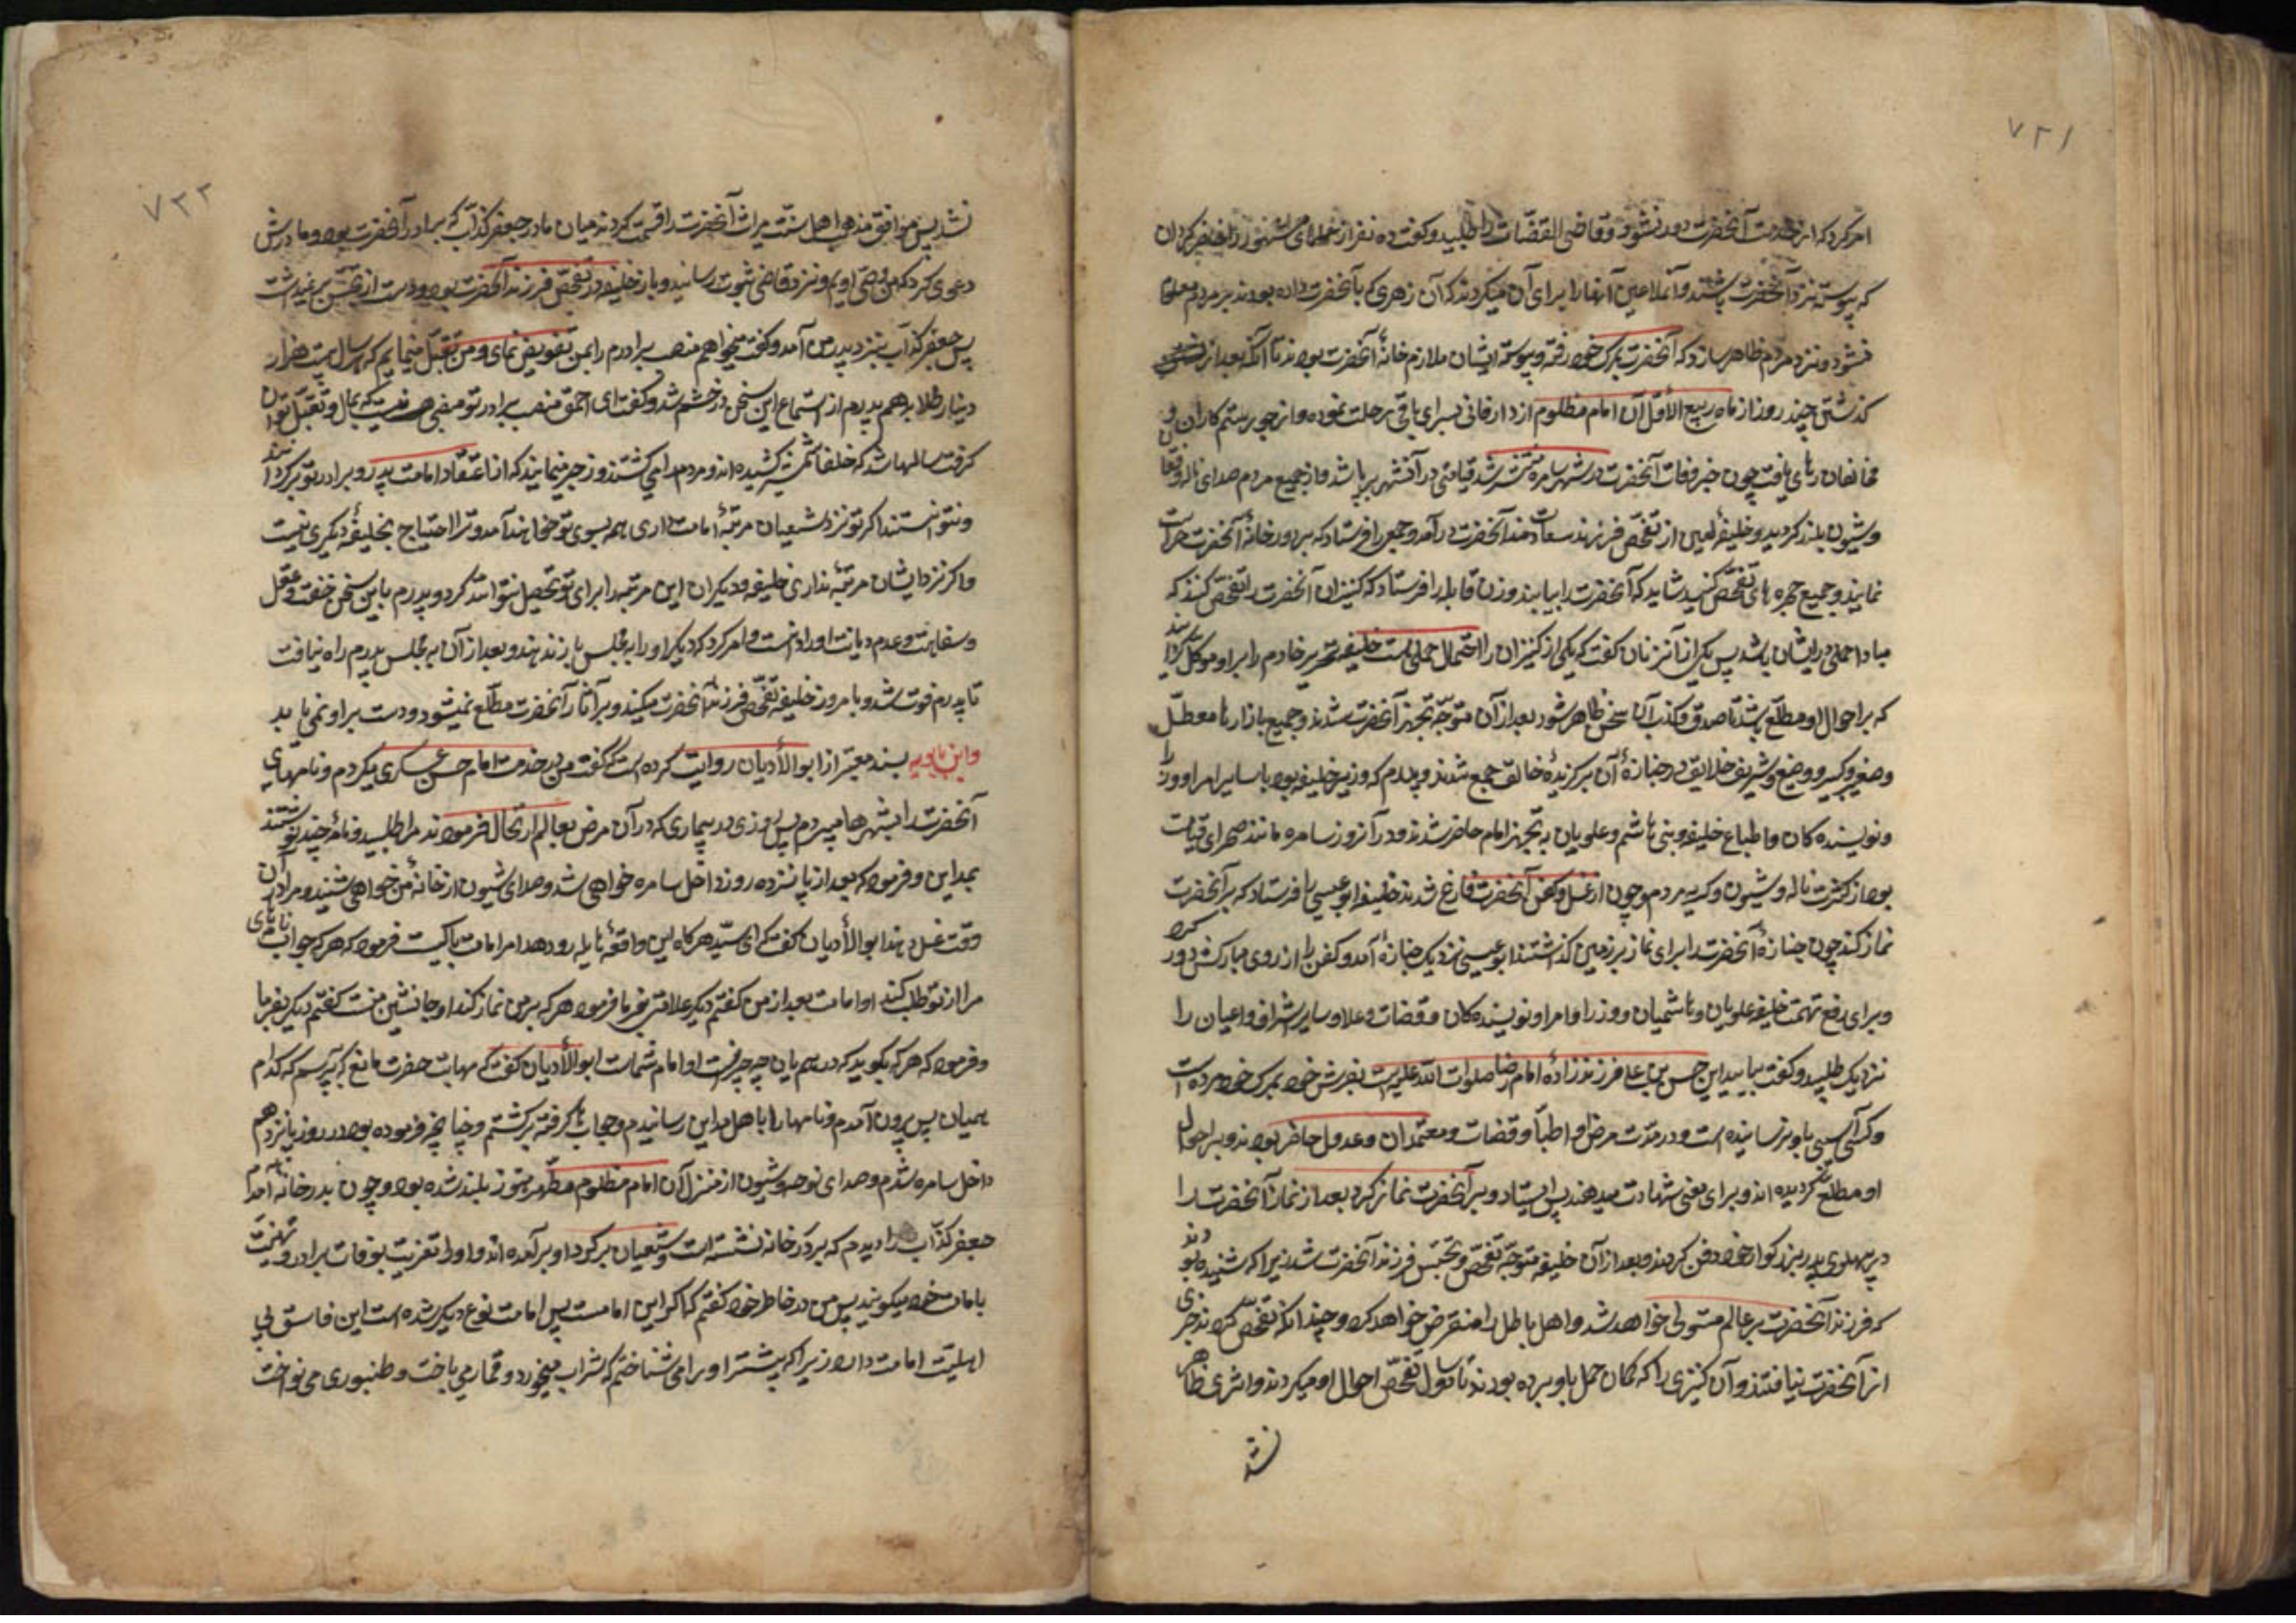 ۷۲۱
امر کرد که از خدمت آنحضرت دور نشوند و قاضی القضات را طلبید و گفت ده نفر از علمای مشهور را حاضر گردان
که پیوسته نزد آنحضرت باشند و آن ملاعین آنها را برای آن میکردند که آن زهری که بآنحضرت داده بودند بر مردم معلوم
نشود و نزد مردم ظاهر سازد که آنحضرت بمرک خود رفته و پیوسته ایشان ملازم خانهٔ آنحضرت بودند تا آنکه بعد از
کذشتن چند روز از ماه ربیع الأول آن امام مظلوم از دار فانی بسرای باقی رحلت نموده و از جور ستمکاران و
مخالفان رهایی یافت چون خبر وفات آنحضرت در شهر سامره منتشر شد قیامتی در آن شهر برپا شد و از جمیع مردم صدای ناله و فغان
و شیون بلند کردید و خلیفه لعین از تفحص فرزند سعادتمند آنحضرت درآمد و جمعی را فرستاد که بر دور خانهٔ آنحضرت حراست
نمایند و جمیع حجره های تفحص کنید شاید که آنحضرت را بیابند و زن قابله را فرستاد که کنیزان آنحضرت را تفحص کنند که
مبادا حملی در ایشان باشد پس یکی از آن زنان کفت که یکی از کنیزان را احتمال حملی هست خلیفه نحریر خادم را بر او موکل کردانید
که بر احوال او مطلع باشد تا صدق و کذب آن سخن ظاهر شود بعد از آن متوجه تجهیز آنحضرت شدند و جمیع بازارها معطل شد
و صغیر و کبیر و وضیع و شریف خلایق در جنازهٔ آن برکزیدهٔ خالق جمع شدند و پدرم که وزیر خلیفه بود با سایر امرا و وزرا
و نویسنده کان و اطباع خلیفه و بنی هاشم و علویان به تجهیز امام حاضر شدند و در آن روز سامره مانند صحرای قیامت
بود از کثرت ناله و شیون و کریه مردم و چون از غسل و کفن آنحضرت فارغ شدند خلیفه ابو عیسی را فرستاد که بر آنحضرت
نماز کند چون جنازهٔ آنحضرت را برای نماز بر زمین کذاشتند ابو عیسی نزدیک جنازهٔ آمد و کفن را از روی مبارکش دور کرد
و برای رفع تهمت خلیفه علویان و هاشمیان و وزرا و امرا و نویسنده کان و قضات و علما و سایر اشراف و اعیان را
نزدیک طلبید و کفت بیایید این حسن بن علی فرزند زادهٔ امام رضا صلوات الله علیه است بفرش خود بمرک خود مرده است
و کسی آسیبی باو نرسانیده است و در مدت مرض او اطبا و قضات و معتمدان و عدول حاضر بودند و بر احوال
او مطلع کردیده اند و برای معنی شهادت میدهند پس ایستاد و بر آنحضرت نماز کرد بعد از نماز آنحضرت را
در پهلوی پدر بزرکوار خود دفن کردند و بعد از آن خلیفه متوجه تفحص و تجسس فرزند آنحضرت شد زیرا که شنیده بودند
که فرزند آنحضرت بر عالم متولی خواهد شد و اهل باطل را منقرض خواهد کرد و چندانکه تفحص کردند خبری
از آنحضرت نیافتند و آن کنیزی را که کمان حمل باو برده بودند تا دو سال تفحص احوال او میکردند و اثری ظاهر
نشد
۷۲۲
نشد پس موافق مذهب اهل سنت میراث آنحضرت را قسمت کردند میان مادر و جعفر کذاب که برادر آنحضرت بود و مادرش
دعوی کرد که من وصی اویم و نزد قاضی بثبوت رسانید و باز خلیفه در تفحص فرزند آنحضرت بود و دست از تجسس برنمیداشت
پس جعفر کذاب بنزد پدر من آمد و کفت میخواهم منصب برادرم را بمن تفویض نمای و من تقبل مینمایم که هر سال بیست هزار
دینار طلا بدهم پدرم از استماع این سخن در خشم شد و کفت ای احمق منصب برادر تو منصبی نیست که بمال و تقبل توان
کرفت سالها شد که خلفا شمشیر کشیده اند و مردم را می کشتند و زجر مینمایند که از اعتقاد امامت پدر و برادر تو برکردند
و نتوانستند اکر تو نزد شیعیان مرتبهٔ امامت داری همه بسوی تو خواهند آمد و ترا احتیاج بخلیفه و دیکری نیست
و اکر نزد ایشان مرتبهٔ نداری خلیفه و دیکران این مرتبه را برای تو تحصیل نتوانند کرد و پدرم باین سخن خفت عقل
و سفاهت و عدم دیانت او را دانست و امر کرد که دیکر او را به مجلس بار ندهند و بعد از آن به مجلس پدرم راه نیافت
تا پدرم فوت شد و تا امروز خلیفه تفحص فرزند آنحضرت میکند و بر آثار آنحضرت مطلع نمیشود و دست بر او نمی یابد
و ابن بابویه بسند معتبر از ابو الأدیان روایت کرده است که کفت من در خدمت امام حسن عسکری میکردم و نامهای
آنحضرت را بشهرها میبردم پس روزی در بیماری که در آن مرض بعالم ارتحال فرمودند مرا طلبید و نامهٔ چند نوشتند
بمداین و فرمود که بعد از پانزده روز داخل سامره خواهی شد و صدای شیون از خانهٔ من خواهی شنید و مرا در آن
وقت غسل دهند ابو الأدیان کفت که ای سید هرکاه این واقعهٔ هایله رو دهد امر امامت با کیست فرمود که هر که جواب نامهای
مرا از تو طلب کند او امامست بعد از من کفتم دیکر علامتی بفرما فرمود هر که بر من نماز کند او جانشین منست کفتم دیکر بفرما
و فرمود که هر که بکوید که در همیان چه چیز است او امام شماست ابو الأدیان کفت که مهابت حضرت مانع که بپرسم که کدام
همیان پس بیرون آمدم و نامها را با هل مداین رسانیدم و جواب ها کرفته برکشتم و چنانچه فرموده بود در روز پانزدهم
داخل سامره شدم و صدای نوحه و شیون از منزل آن امام مظلوم مطهر منور بلند شده بود و چون بدر خانه آمدم
جعفر کذاب را دیدم که بر در خانه نشسته است و شیعیان بر کرد او برآمده اند و او را تعزیت بوفات برادر و تهنیت
بامامت خود میکویند پس من در خاطر خود کفتم که اکر این امامست پس امامت نوع دیکر شده است این فاسق کی
اهلیت امامت دارد زیرا که پیشتر او را می شناختم که شراب میخورد و قمار می باخت و طنبور می نواخت